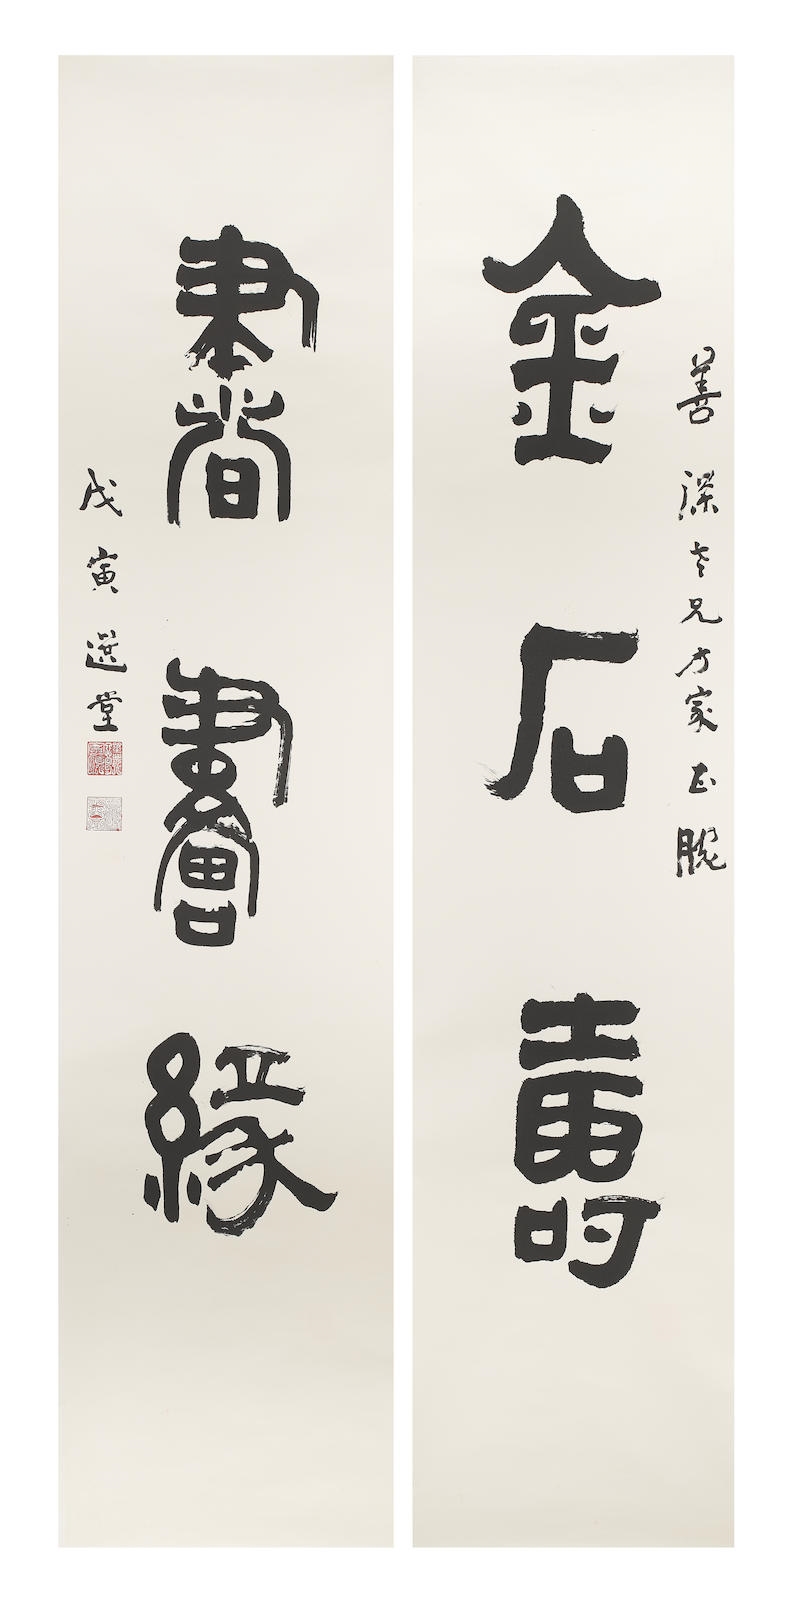 善深老兄方家正腕
金石壽
書畫緣
戊寅選堂